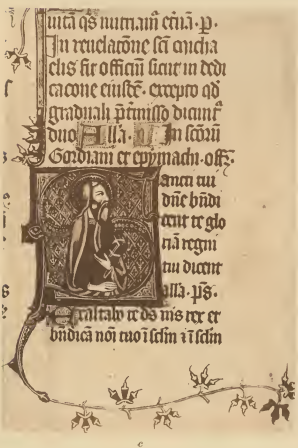 uitā qs nutriam̄ et̄na · p̄ ·
In reuelatōne sc̄i micha
elis fit officiū sicut in dedi
catōne eiusdē · excepto qd̄
graduali p̄tmisso dicunt᷑
duo Alla · In sc̄orū
Gordiani et epymachi · off᷑ ·
Sancti tui
dn̄e bn̄di
cent te glo
riā regni
tui dicent
alla · p̄s ·
Exaltabo te ds̄ m̄s rex et
bn̄dicā noī tuo ī sc̄lm ⁊ ī sc̄lm
c